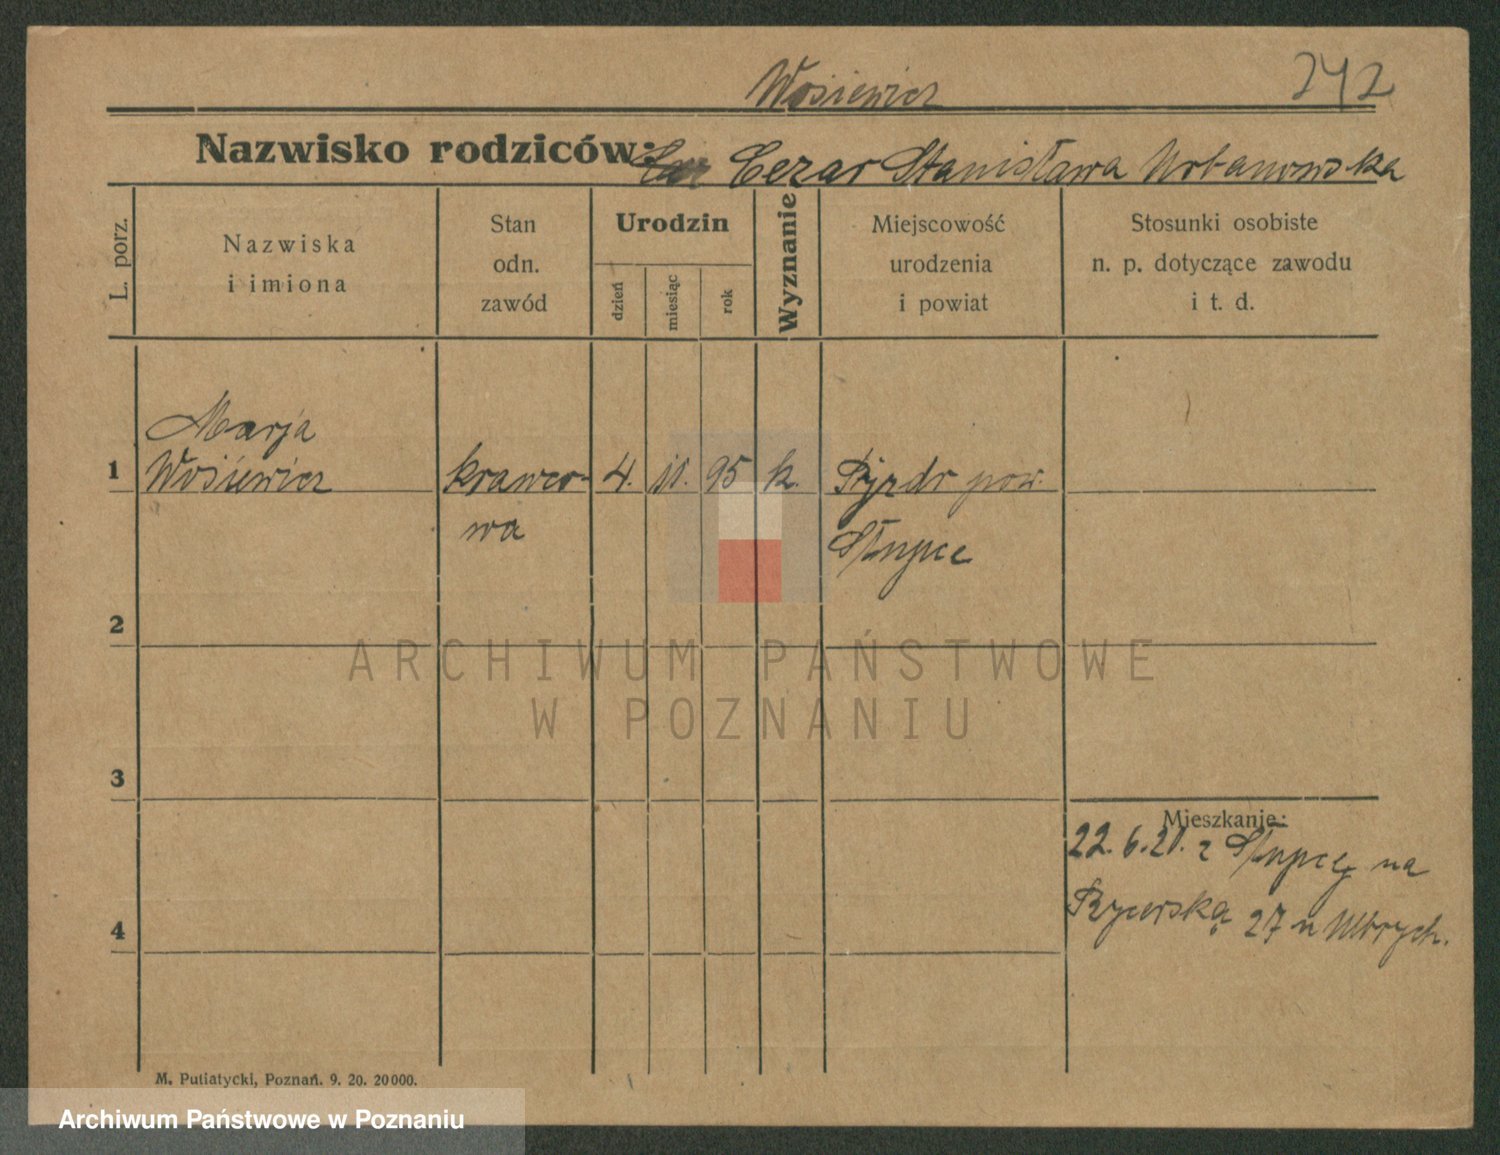 Wosiewicz
242
Nazwisko rodziców: Cezar Stanisława Urbanowska
L. porz.
Nazwiska
i imiona
Stan
odn.
zawód
Urodzin
dzień
miesiąc
rok
Wyznanie
Miejscowość
urodzenia
i powiat
Stosunki osobiste
n. p. dotyczące zawodu
i t. d.
Marja
1 Wosiewicz krawco- 4. 95 k. pow.
wa Słupce
2
ARCHIWUM PAŃSTWOWE
W POZNANIU
3
Mieszkanie:
22.6.21. z Słupcy na
4 Rycerską 27 u
M. Putiatycki, Poznań. 9. 20. 20000.
Archiwum Państwowe w Poznaniu